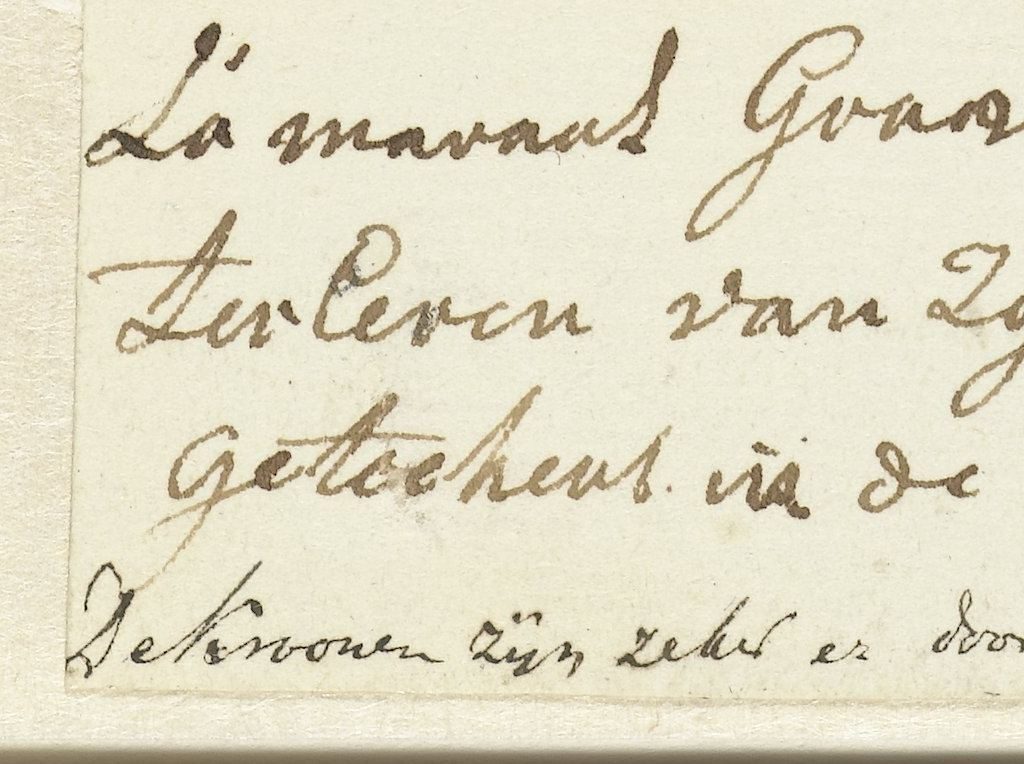 La maraal Graav
ter leven van Zy
geteekend in de
De Kroonen zijn zeker er door